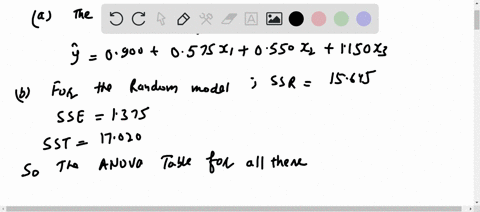 (a) The
ŷ = 0.900 + 0.575 x₁ + 0.550 x₂ + 1.150 x₃
(b) For the Random model ; SSR = 15.645
SSE = 1.375
SST = 17.020
So The ANOVA Table for all there